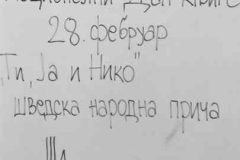 28. фебруар
„Ти, Ја и Нико"
шведска народна прича